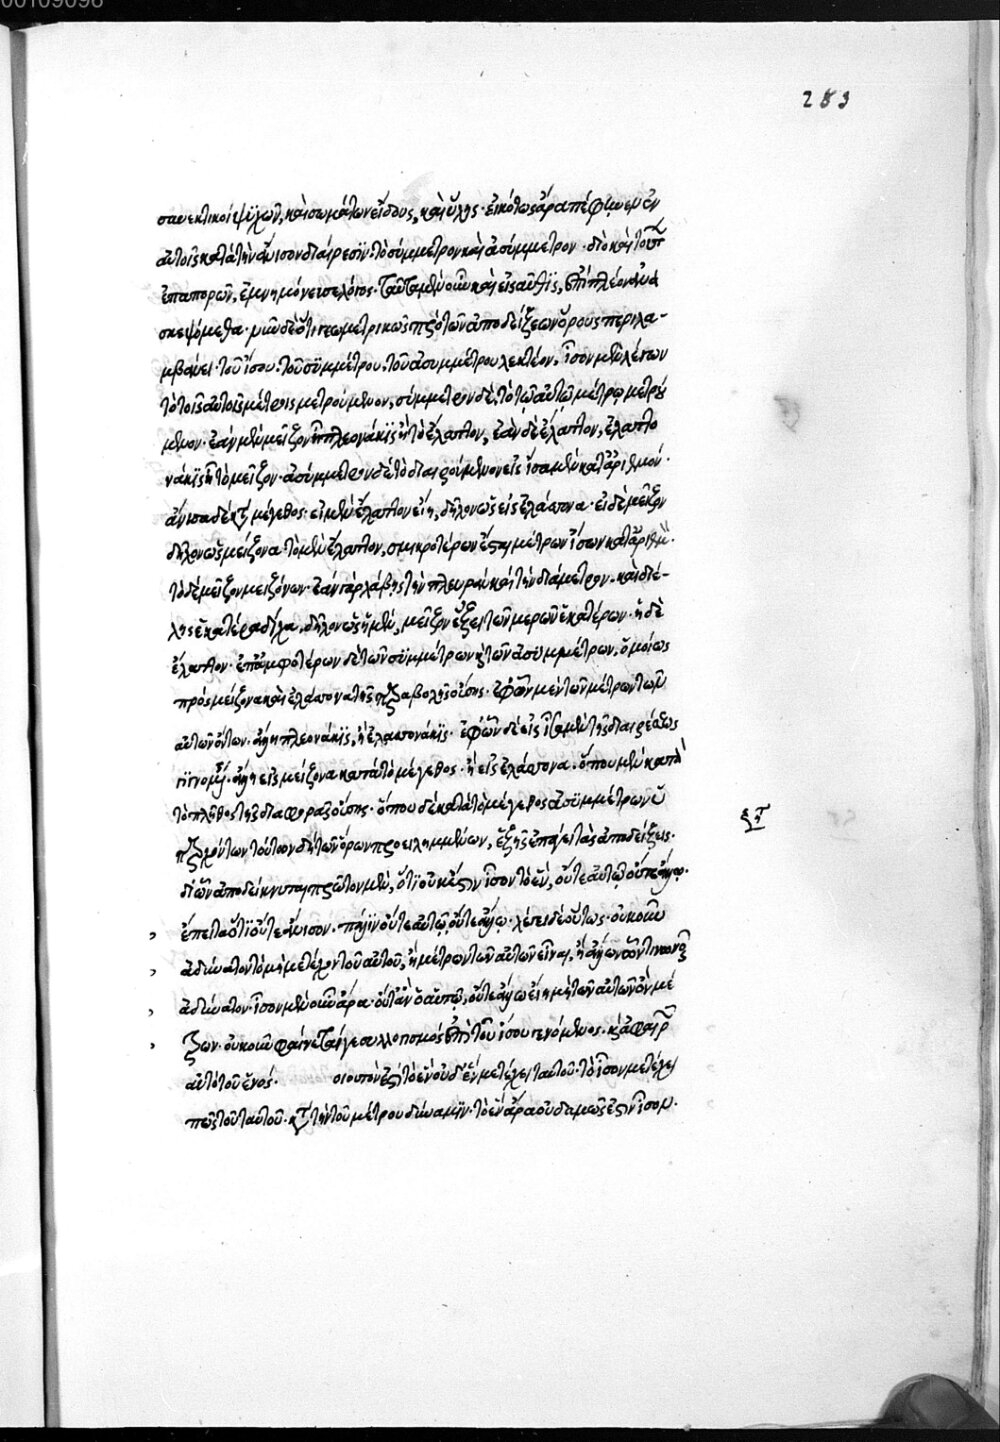 00109098
283
σαν εκτικοὶ ψυχῶν, καὶ σωμάτων εἴδους, καὶ ὕλης· εἰκότως ἄρα πέφηνεν ἐν
αὐτοῖς κατὰ τὴν ἄνισον διαίρεσϊν· τὸ σύμμετρον καὶ ἀσύμμετρον· διὸ καὶ
ἐπαπορῶν, ἐμνημόνευσε λόγος· ταῦτα μὲν οὖν καὶ εἰσαῦθϊς, ἐπὶ πλέον
σκεψόμεθα· νῦν δὲ ὅτι γεωμετρικῶς πρὸ τῶν ἀποδείξεων ὅρους περιλα-
μβάνει· τοῦ ἴσου· τοῦ συμμέτρου· τοῦ ἀσυμμέτρου λεκτέον, ἴσον μὲν λέγων
τὸ τοῖς αὐτοῖς μέτροις μετρούμενον, σύμμετρον δὲ, τὸ τῷ αὐτῷ μέτρῳ μετρού
μενον· ἐὰν μὲν μεῖζον ἦ πλεονάκϊς ἢ τὸ ἔλαττον, ἐὰν δὲ ἔλαττον, ἐλαττο
νάκϊς ἢ τὸ μεῖζον· ἀσύμμετρον δὲ τὸ διαιρούμενον εἰς ἴσα μὲν κατ' ἀριθμόν·
ἄνισα δὲ κατὰ μέγεθος· εἰ μὲν ἔλαττον εἴη, δηλονὼς εἰς ἐλάττονα· εἰ δὲ μεῖζον
δηλονὼς μείζονα· τὸ μὲν ἔλαττον, σμικροτέρων ἔσται μέτρων ἴσων κατ' ἀριθμὸν·
τὸ δὲ μεῖζον μειζόνων· ἐὰν γὰρ λάβῃς τὴν πλευρὰν καὶ τὴν διάμετρον· καὶ διέ-
λῃς ἑκατέρα δίχα, δηλονὼς ἡ μὲν, μεῖζον ἕξει τῶν μερῶν ἑκατέρων· ἡ δὲ
ἔλαττον· ἐπ' ἀμφοτέρων δὲ τῶν συμμέτρων καὶ τῶν ἀσυμμέτρων, ὁμοίως
πρὸς μείζονα καὶ ἐλάττονα τῆς παραβολῆς οὔσης· ἐφ' ὧν μὲν τῶν μέτρων τῶν
αὐτῶν ὄντων· ἀλλ' ἢ πλεονάκϊς, ἢ ἐλαττονάκϊς· ἐφ' ὧν δὲ εἰς ἴσα μὲν τῆς διαιρέσεως
γινομένης· ἀλλ' ἢ εἰς μείζονα κατὰ τὸ μέγεθος· ἢ εἰς ἐλάττονα· ὅπου μὲν κατὰ
τὸ πλῆθος τῆς διαφορᾶς οὔσης· ὅπου δὲ κατὰ τὸ μέγεθος ἀσυμμέτρων
τούτων δὴ τῶν ὅρων προειλημμένων, ἑξῆς ἐπάγει τὰς ἀποδείξεις·
δι' ὧν ἀποδείκνυται πρῶτον μὲν, ὅτϊ οὐκ ἔστιν ἴσον τὸ ἓν, οὔτε αὐτῷ οὔτε ἄλλῳ·
ἔπειτα ὅτϊ οὔτε ἄνισον· πάλϊν οὔτε αὐτῷ, οὔτε ἄλλῳ· λέγει δὲ οὕτως· οὐκοῦν
ἀδύνατον τὸ μὴ μετέχον τοῦ αὐτοῦ, ἢ μέτρων τῶν αὐτῶν εἶναι, ἢ ἄλλων
ἀδύνατον· ἴσον μὲν οὖν ἄρα· οὔτ' ἂν ἑαυτῷ, οὔτε ἄλλῳ εἴη μὴ τῶν αὐτῶν ὂν μέ
τρων· οὐκοῦν φαίνεταί γε συλλογισμὸς ἐπὶ τοῦ ἴσου γενόμενος·
αὐτὸ τοῦ ἑνός· οἱουπὸν ἔσται τὸ ἓν οὐδ' ἓν μετέχει ταὐτοῦ· τὸ ἴσον μετέχει
πως τοῦ ταὐτοῦ· κατὰ τὴν τοῦ μέτρου δύναμϊν· τὸ ἓν ἄρα οὐδαμῶς ἔστιν ἴσον.